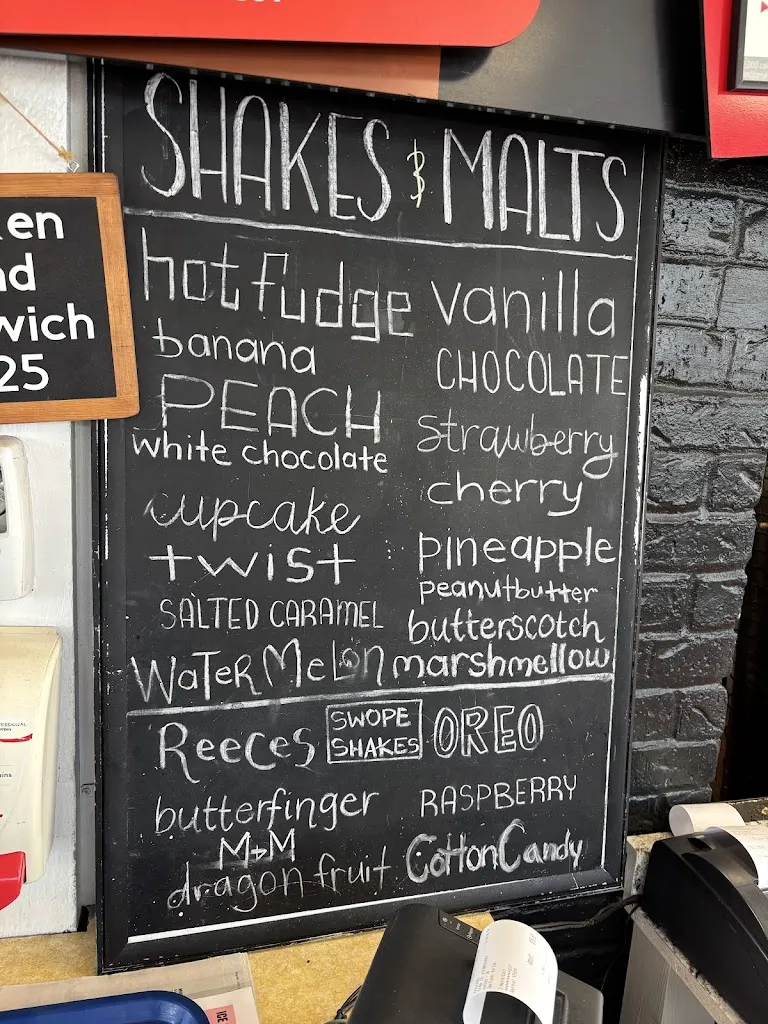 SHAKES & MALTS
hot fudge
banana
PEACH
white chocolate
cupcake
twist
SALTED CARAMEL
WaTeRMeLon
vanilla
CHOCOLATE
Strawberry
cherry
pineapple
peanutbutter
butterscotch
marshmellow
Reeces
SWOPE
SHAKES
OREO
butterfinger
RASPBERRY
M+M
dragon fruit
Cotton Candy
wich
25
ICE